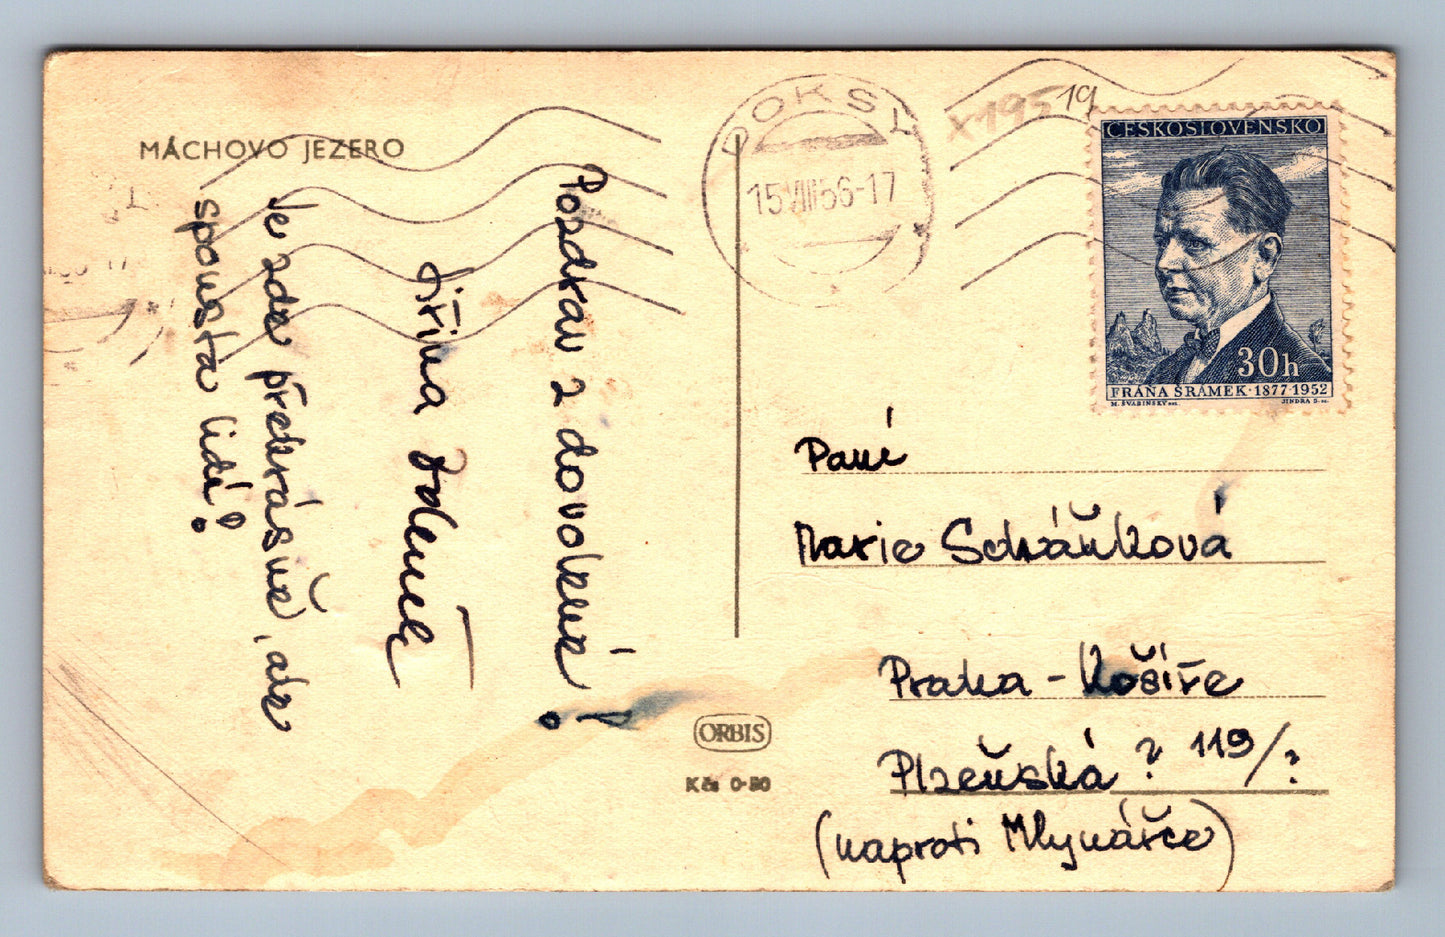 MÁCHOVO JEZERO
Pozdrav z dovolené!
Jiřina
Je zde překrásně, ale
spousta lidí!
DOKSY
15.VIII 56-17
X195
19
ČESKOSLOVENSKO
30h
FRÁŇA ŠRÁMEK · 1877-1952
M. ŠVABINSKÝ
JINDRA S.
Paní
Marie
Praha - Košíře
Plzeňská ? 119/?
(naproti Mlynářce)
ORBIS
Kčs 0·80